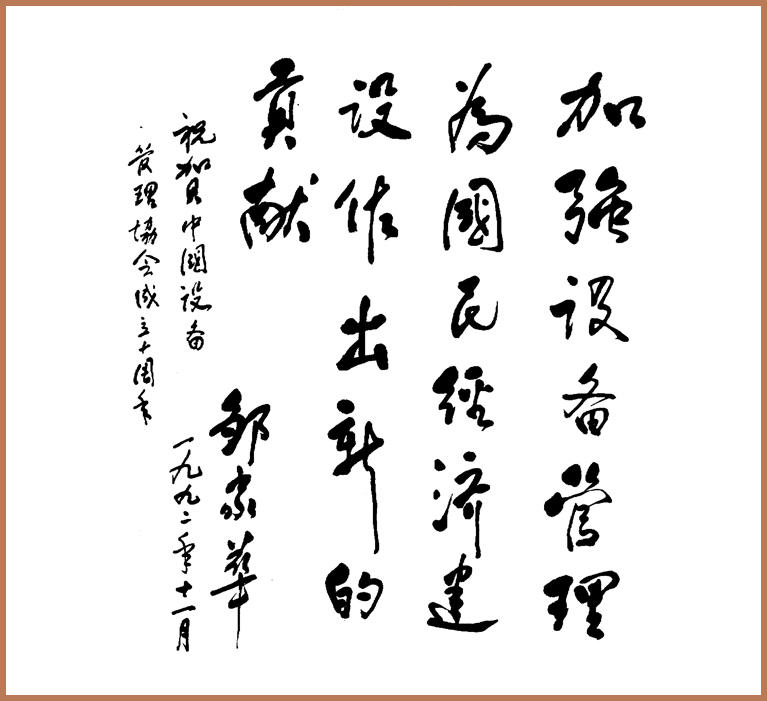 加强设备管理
為國民経济建
设作出新的
貢献
祝贺中國设备
管理協会成立十周年
邹家华
一九九二年十一月